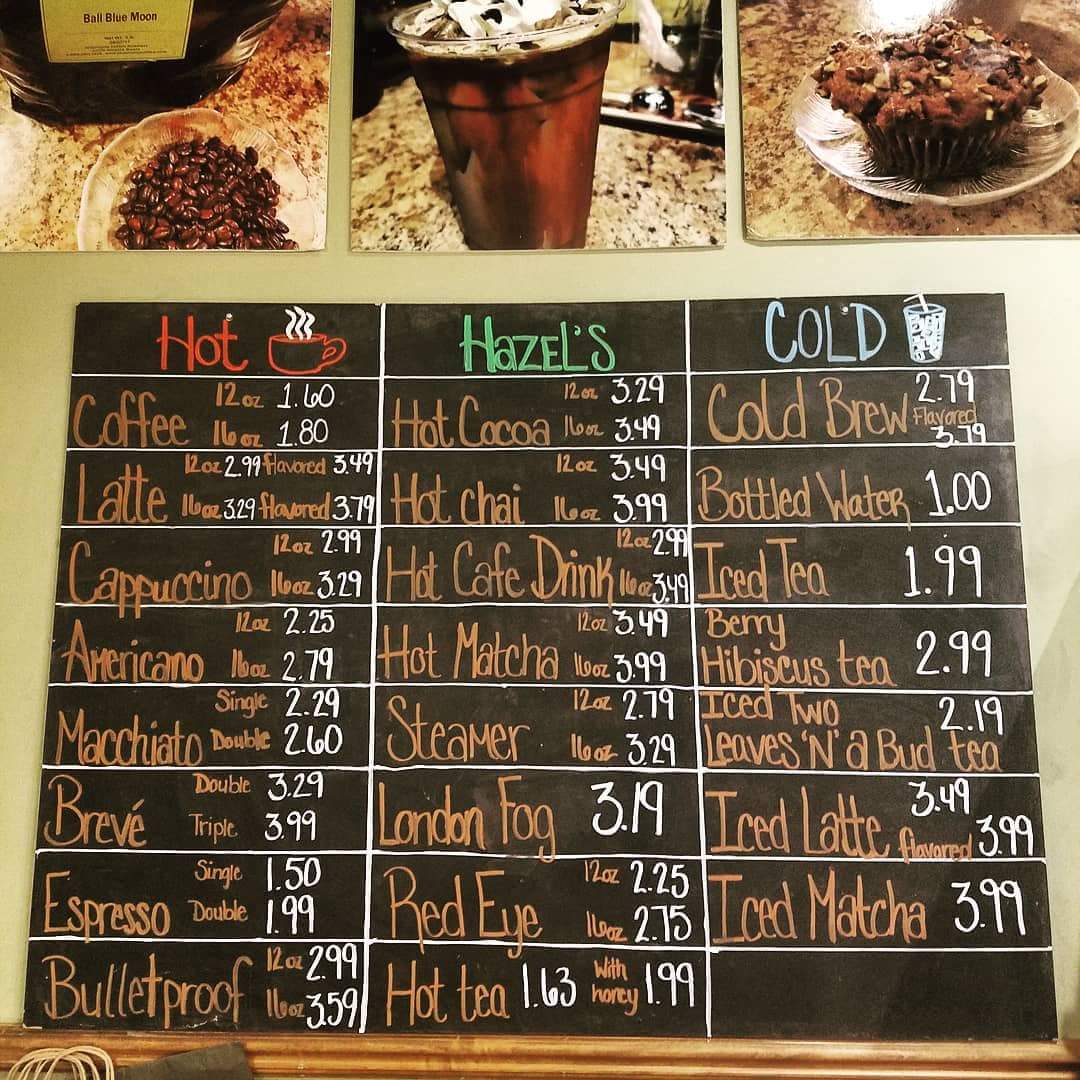 Bali Blue Moon
Hot
Coffee 12oz 1.60
16oz 1.80
Latte 12oz 2.99 flavored 3.49
16oz 3.29 flavored 3.79
Cappuccino 12oz 2.99
16oz 3.29
Americano 12oz 2.25
16oz 2.79
Macchiato Single 2.29
Double 2.60
Brevé Double 3.29
Triple 3.99
Espresso Single 1.50
Double 1.99
Bulletproof 12oz 2.99
16oz 3.59
HAZEL'S
Hot Cocoa 12oz 3.29
16oz 3.49
Hot chai 12oz 3.49
16oz 3.99
Hot Cafe Drink 12oz 2.99
16oz 3.49
Hot Matcha 12oz 3.49
16oz 3.99
Steamer 12oz 2.79
16oz 3.29
London Fog 3.19
Red Eye 12oz 2.25
16oz 2.75
Hot tea 1.63 with honey 1.99
COLD
Cold Brew 2.79
Flavored 3.79
Bottled Water 1.00
Iced Tea 1.99
Berry
Hibiscus tea 2.99
Iced Two 2.19
Leaves 'N' a Bud tea
Iced Latte 3.49
flavored 3.99
Iced Matcha 3.99